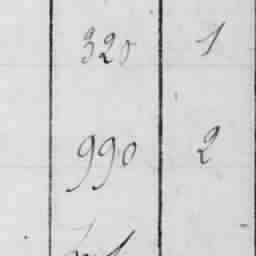 320 1
990 2